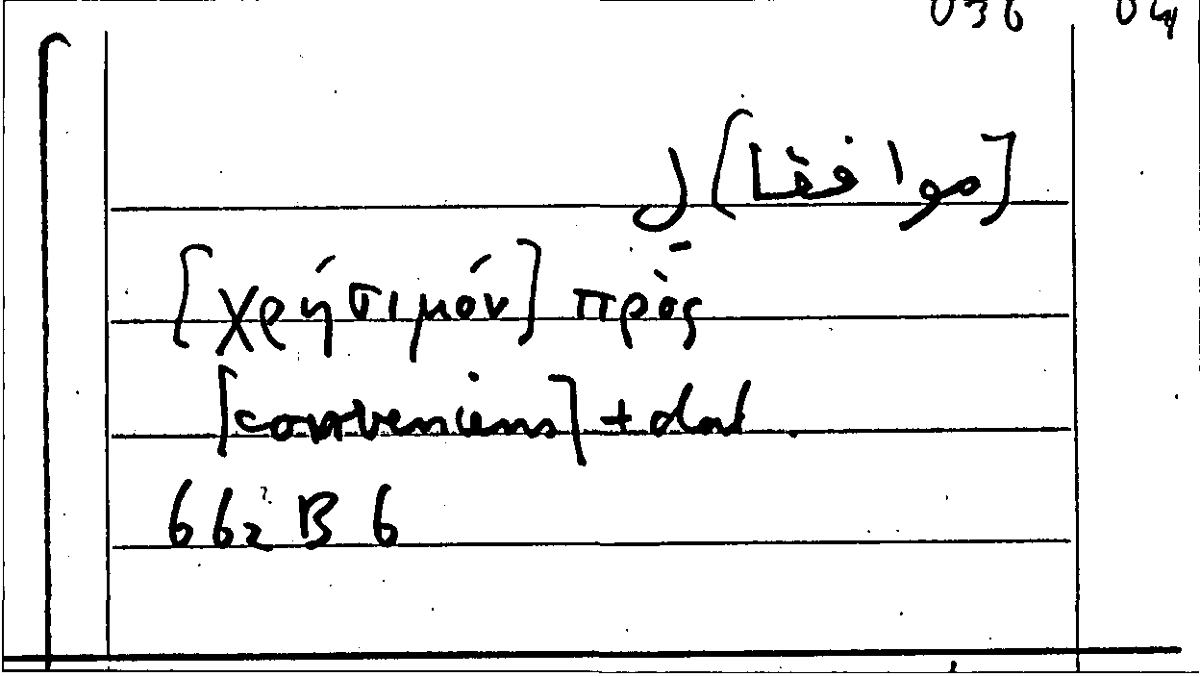 036 04
[موافقا] ل
[χρήσιμόν] πρὸς
[conveniens] + dat.
662 B 6